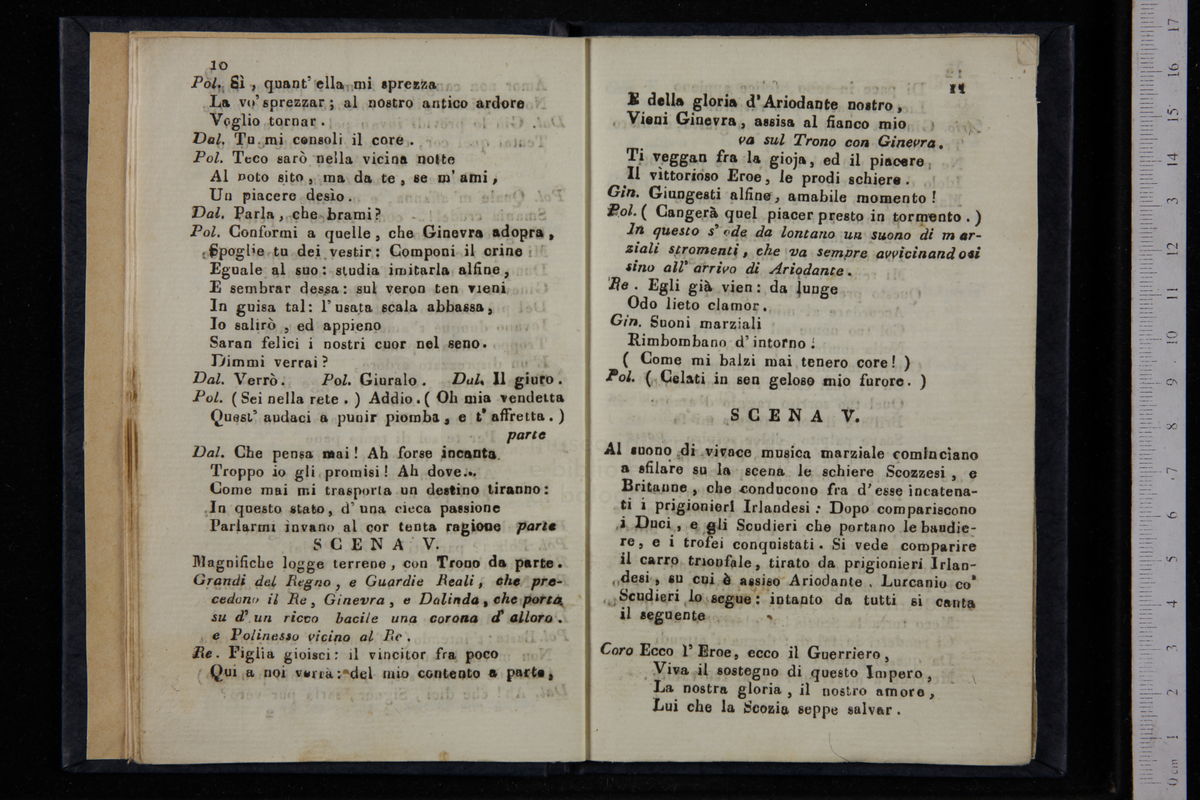 10
Pol. Sì, quant' ella mi sprezza
La vo' sprezzar; al nostro antico ardore
Voglio tornar.
Dal. Tu mi consoli il core.
Pol. Teco sarò nella vicina notte
Al noto sito, ma da te, se m' ami,
Un piacere desìo.
Dal. Parla, che brami?
Pol. Conformi a quelle, che Ginevra adopra,
Spoglie tu dei vestir: Componi il crine
Eguale al suo: studia imitarla alfine,
E sembrar dessa: sul veron ten vieni
In guisa tal: l' usata scala abbassa,
Io salirò, ed appieno
Saran felici i nostri cuor nel seno.
Dimmi verrai?
Dal. Verrò. Pol. Giuralo. Dal. Il giuro.
Pol. (Sei nella rete.) Addio. (Oh mia vendetta
Quest' audaci a punir piomba, e t' affretta.)
parte
Dal. Che pensa mai! Ah forse incanta
Troppo io gli promisi! Ah dove...
Come mai mi trasporta un destino tiranno:
In questo stato, d' una cieca passione
Parlarmi invano al cor tenta ragione parte
SCENA V.
Magnifiche logge terrene, con Trono da parte.
Grandi del Regno, e Guardie Reali, che pre-
cedono il Re, Ginevra, e Dalinda, che porta
su d' un ricco bacile una corona d' alloro.
e Polinesso vicino al Re.
Re. Figlia gioisci: il vincitor fra poco
Qui a noi verrà: del mio contento a parte,
11
E della gloria d' Ariodante nostro,
Vieni Ginevra, assisa al fianco mio
va sul Trono con Ginevra.
Ti veggan fra la gioja, ed il piacere
Il vìttorioso Eroe, le prodi schiere.
Gin. Giungesti alfine, amabile momento!
Pol. (Cangerà quel piacer presto in tormento.)
In questo s' ode da lontano un suono di mar-
ziali stromenti, che va sempre avvicinandosi
sino all' arrivo di Ariodante.
Re. Egli già vien: da lunge
Odo lieto clamor.
Gin. Suoni marziali
Rimbombano d' intorno!
(Come mi balzi mai tenero core!)
Pol. (Celati in sen geloso mio furore.)
SCENA V.
Al suono di vivace musica marziale cominciano
a sfilare su la scena le schiere Scozzesi, e
Britanne, che conducono fra d' esse incatena-
ti i prigionieri Irlandesi: Dopo compariscono
i Duci, e gli Scudieri che portano le bandie-
re, e i trofei conquistati. Si vede comparire
il carro trionfale, tirato da prigionieri Irlan-
desi, su cui è assiso Ariodante. Lurcanio co'
Scudieri lo segue: intanto da tutti si canta
il seguente
Coro Ecco l' Eroe, ecco il Guerriero,
Viva il sostegno di questo Impero,
La nostra gloria, il nostro amore,
Lui che la Scozia seppe salvar.
0 cm 1 2 3 4 5 6 7 8 9 10 11 12 13 14 15 16 17